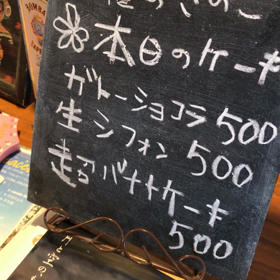 本日のケーキ
ガトーショコラ 500
生シフォン 500
超バナナケーキ
500